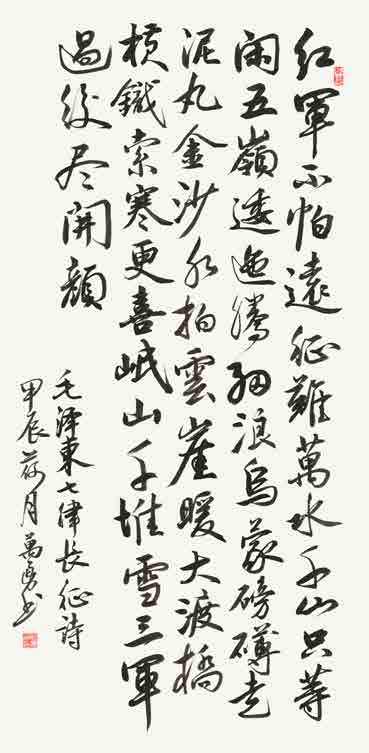 红軍不怕遠征難萬水千山只等
闲五嶺逶迤騰細浪烏蒙磅礴走
泥丸金沙水拍雲崖暖大渡橋
横鐵索寒更喜岷山千堆雪三軍
過後尽開顔
毛澤東七律長征詩
甲辰荷月萬勇书